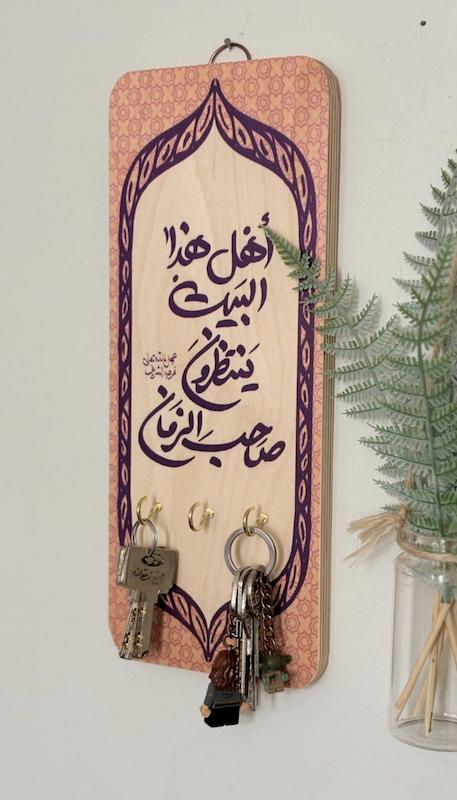 أهل هذا
البيت
ينتظرون
عجل الله تعالى
فرجه الشريف
صاحب الزمان